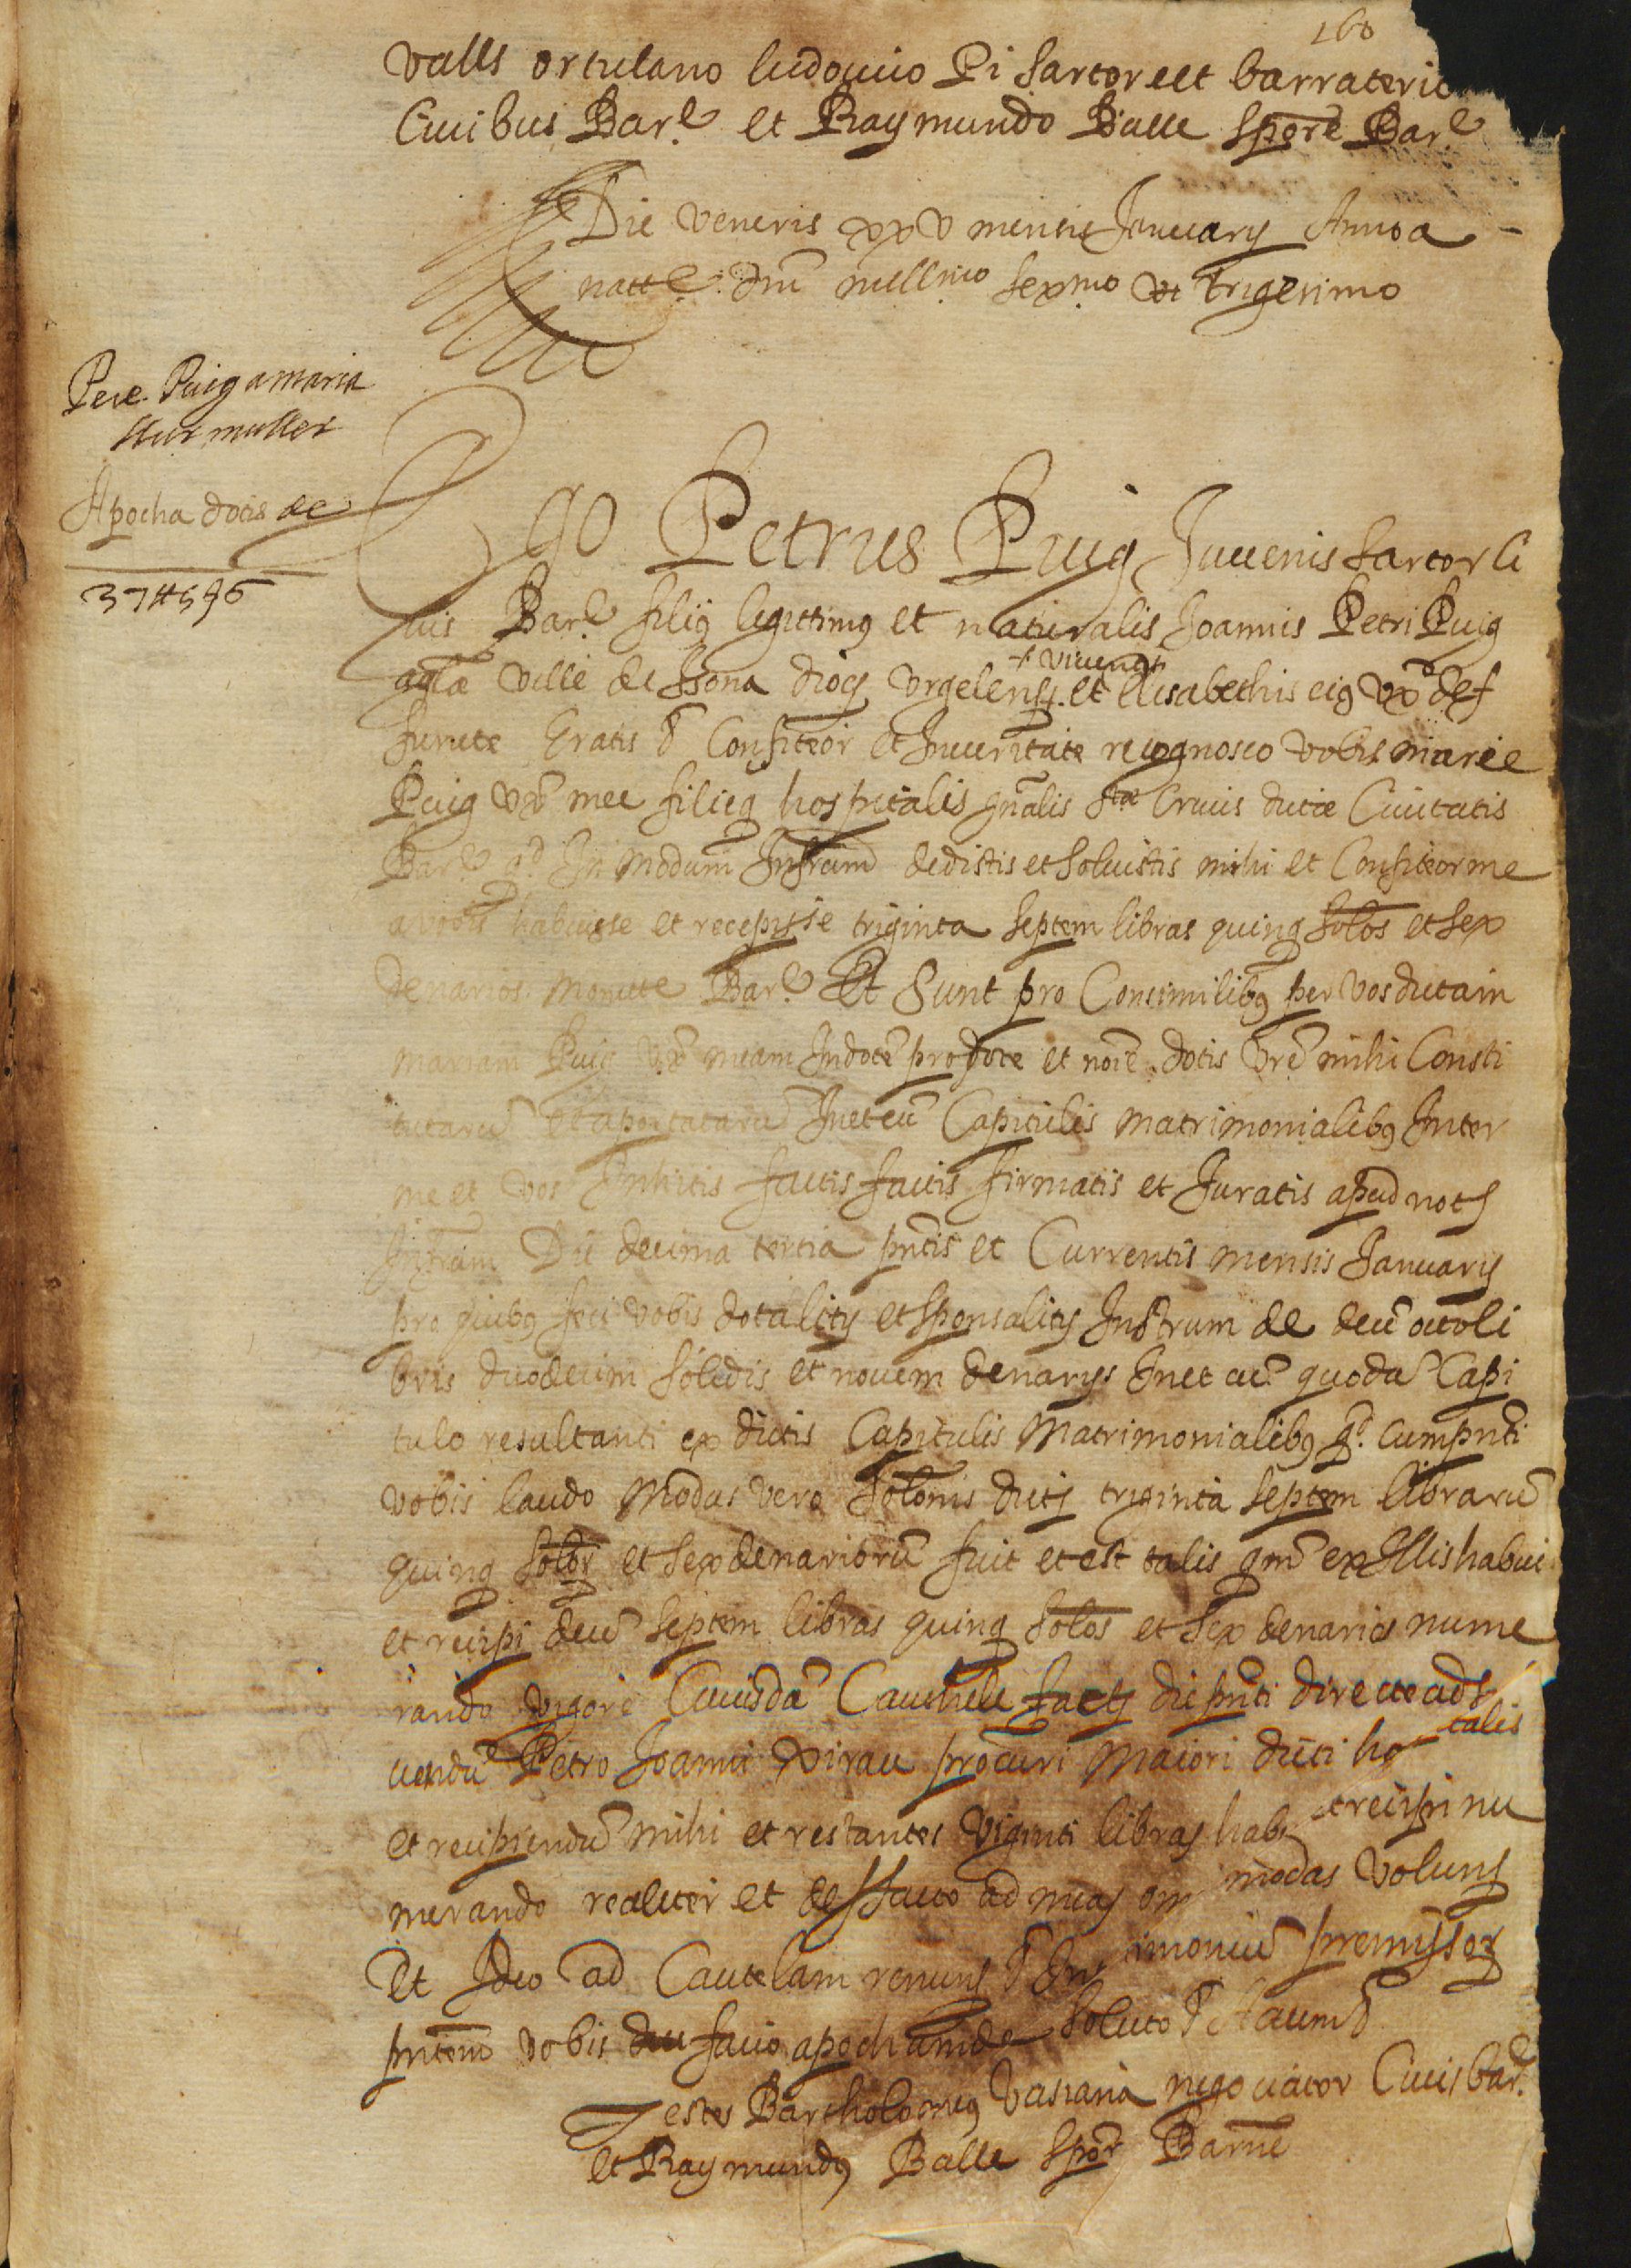 160
valls ortulano ludouico Pi sartore et barraterio
Ciuibus Bar.e et Raymundo Balle spore Bar.e
Die veneris xxv mensis January Anno a
natte. dni millmo sexmo et trigesimo
Pere Puig a maria
sa muller
Apocha dotis de
37 ff 5 s 6
Ego Petrus Puig Juuenis sartor Ci
uis Bar.e filiq legittimq et naturalis Joannis Petri Puig
aglæ ville de Isona diocs Vrgelensis et Elisabethis eiq vxo def
+ viuentis
functe Gratis & Confiteor et In ueritate recognosco vobis marie
Puig vxo mee filieq hospitalis gnalis stæ Crucis dictæ Ciuitatis
Bar.e qd In modum Infrum dedistis et soluistis mihi et Confiteor me
a vobis habuisse et recepisse triginta septem libras quinq solos et sex
denarios monete Bar.e Et sunt pro Consimilibq per vos dictam
mariam Puig vxo meam In dote pro dote et noie dotis vre mihi Consti
tutaru et aportataru In et cu Capitulis matrimonialibq Inter
me et vos Inhitis factis factis firmatis et Juratis apud nots
Infrum Die decima tertia pntis et Currentis mensis January
pro quibq feci vobis dotality et sponsality Instrum de dece octo li
bris duodecim solidis et nouem denarys In et cu quoda Capi
tulo resultanti ex dictis Capitulis Matrimonialibq qd. cum pnti
vobis laudo Modus vero solonis dictj triginta septem libraru
quinq solor et sex denarioru fuit et est talis qm ex Illis habui
et recipi dece septem libras quinq solos et sex denarios nume
rando vigore Cuiusda Cauthele facte die pnti directe ad s
uendu Petro Joanni Xirau procuri maiori dicti ho talis
et recipiendu mihi et restantes viginti libras hab et recipi nu
merando realiter et de facto ad meas om modas voluns
Et Ideo ad Cautelam renuns & In imoniu premissor
pntem vobis facio apocham de soluto & Actum &
Testes Bartholomeq Vastana negociator Ciuis bar.e
et Raymundq Balle spor Barne